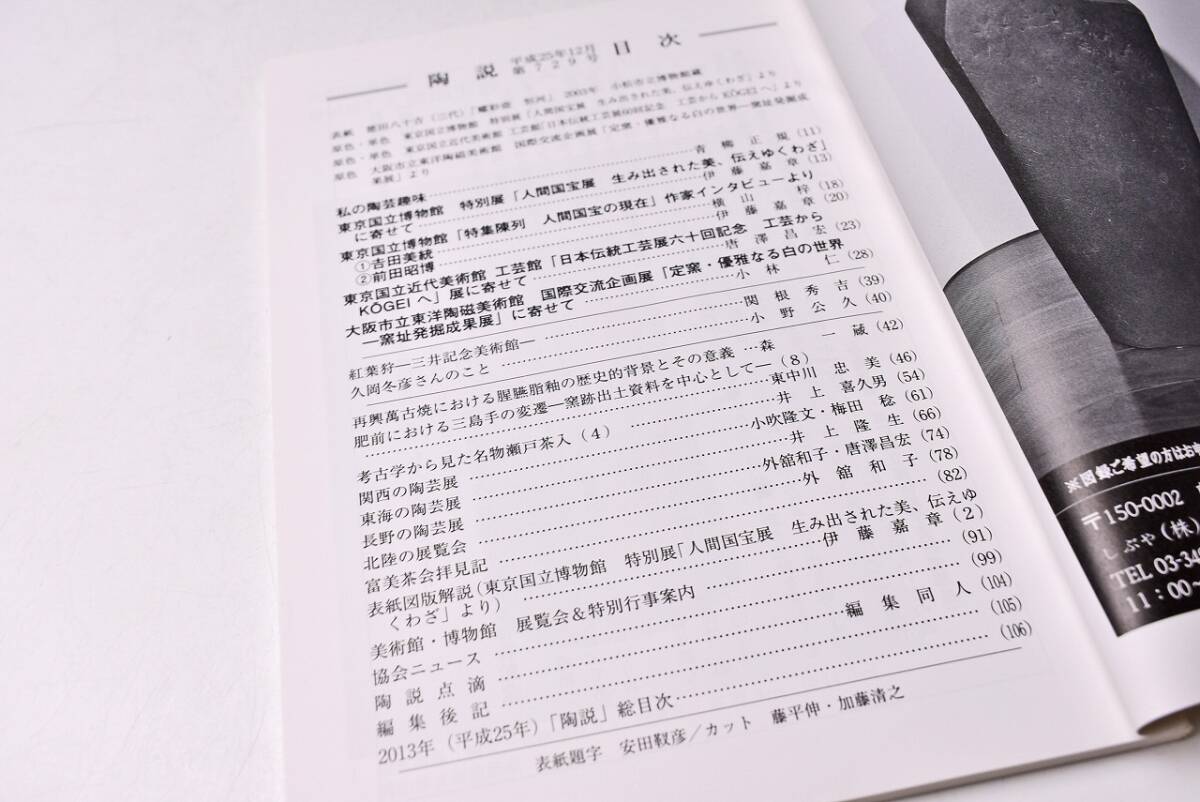 陶説 平成25年12月 第729号 目次
表紙 徳田八十吉（三代）「耀彩壺 恒河」 2003年 小松市立博物館蔵
原色・単色 東京国立博物館 特別展「人間国宝展 生み出された美、伝えゆくわざ」より
原色・単色 東京国立近代美術館 工芸館「日本伝統工芸展60回記念 工芸からKŌGEIへ」より
原色 大阪市立東洋陶磁美術館 国際交流企画展「定窯・優雅なる白の世界―窯址発掘成
果展」より
私の陶芸趣味……青柳正規 (11)
東京国立博物館 特別展「人間国宝展 生み出された美、伝えゆくわざ」
に寄せて……伊藤嘉章 (13)
東京国立博物館「特集陳列 人間国宝の現在」作家インタビューより
①吉田美統……横山梓 (18)
②前田昭博……伊藤嘉章 (20)
東京国立近代美術館 工芸館「日本伝統工芸展六十回記念 工芸から
KŌGEIへ」展に寄せて……唐澤昌宏 (23)
大阪市立東洋陶磁美術館 国際交流企画展「定窯・優雅なる白の世界
―窯址発掘成果展」に寄せて……小林仁 (28)
紅葉狩―三井記念美術館―……関根秀吉 (39)
久岡冬彦さんのこと……小野公久 (40)
再興萬古焼における腥臙脂釉の歴史的背景とその意義…森一蔵 (42)
肥前における三島手の変遷―窯跡出土資料を中心として―（8）
……東中川忠美 (46)
考古学から見た名物瀬戸茶入（4）……井上喜久男 (54)
関西の陶芸展……小吹隆文・梅田稔 (61)
東海の陶芸展……井上隆生 (66)
長野の陶芸展……外舘和子・唐澤昌宏 (74)
北陸の展覧会……外舘和子 (78)
富美茶会拝見記…… (82)
表紙図版解説（東京国立博物館 特別展「人間国宝展 生み出された美、伝えゆ
くわざ」より）……伊藤嘉章 (2)
美術館・博物館 展覧会＆特別行事案内…… (91)
協会ニュース…… (99)
陶説点滴……編集同人 (104)
編集後記…… (105)
2013年（平成25年）「陶説」総目次…… (106)
表紙題字 安田靫彦／カット 藤平伸・加藤清之
※図録ご希望の方はお
〒150-0002
しぶや（株）
TEL 03-34
11：00-